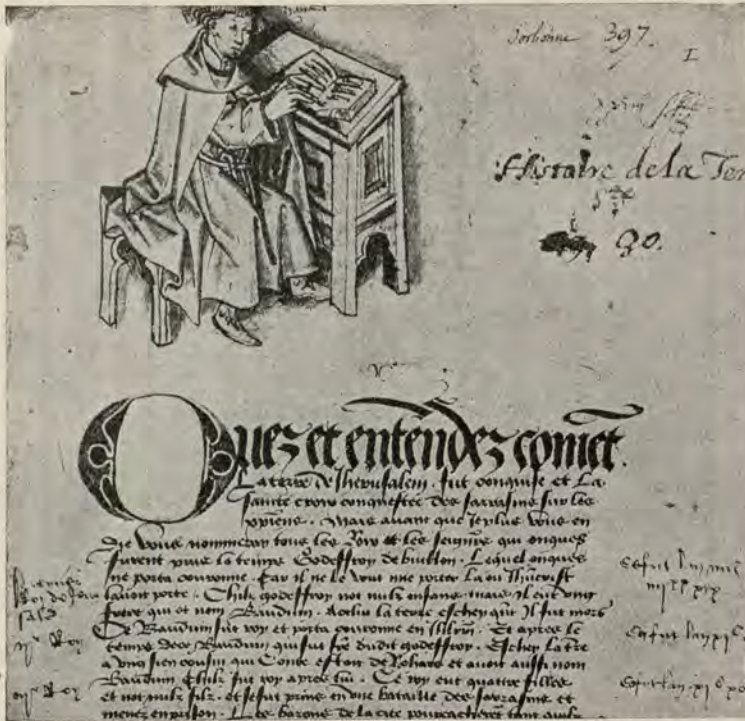 Sorbonne 397.
I
Histoire de la Ter
90.
Ouez et entendez coment
La terre de Jherusalem. fut conquise et La
sainte croix conquestee des sarrasins sur les
xpiens. Mais auant que Je plus vous en
die vous nommeray tous les Roys et les seigneurs qui onques
furent puis le temps Godeffroy de buillon. Lequel onques
ne porta couronne. Car il ne le vout mie porter La ou Jhucrist
lauoit porte. Chilz godeffroy not nulz enfans mais il eut vng
frere qui ot nom Bauduin. Acellui la terre eschey quant Il fut mors
De Bauduin fut roy et porta couronne en Jhlrm. Et apres le
temps dece Bauduin qui fut frere dudit godeffroy. Eschey La terre
a vng sien cousin qui Conte estoit de Rohais et auoit aussi nom
Bauduin Chilz fut roy apres lui. Ce roy eut quattre filles
et not nulz filz. et se fut prins en vne bataille des sarrasins et
menez en prison. Les barons de la cite pourchacherent tant
Premier
Roy de
ije Roy
iije Roy
Ce fut lan mil
Ce fut lan xjc
Ce fut lan xjc